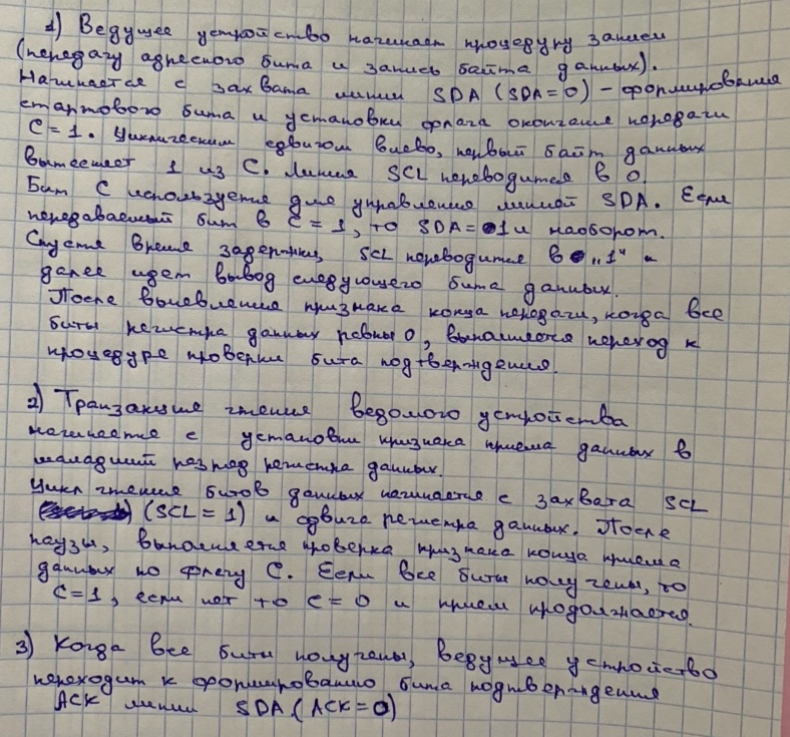 1) Ведущее устройство начинает процедуру записи
(передачу адресного бита и запись байта данных).
Начинается с захвата линии SDA (SDA=0) - формирования
стартового бита и установки флага окончания передачи
C=1. Циклическим сдвигом влево, первый байт данных
вытесняет 1 из C. Линия SCL переводится в 0.
Бит C используется для управления линией SDA. Если
передаваемый бит в C=1, то SDA=1 и наоборот.
Спустя время задержки, SCL переводится в "1" и
далее идет вывод следующего бита данных.
После выявления признака конца передачи, когда все
биты регистра данных равны 0, выполняется переход к
процедуре проверки бита подтверждения.
2) Транзакция чтения ведомого устройства
начинается с установки признака приема данных в
младший разряд регистра данных.
Цикл чтения битов данных начинается с захвата SCL
(SCL = 1) и сдвига регистра данных. После
паузы, выполняется проверка признака конца приема
данных по флагу C. Если все биты получены, то
C=1, если нет то C=0 и прием продолжается.
3) Когда все биты получены, ведущее устройство
переходит к формированию бита подтверждения
ACK линии SDA (ACK=0)